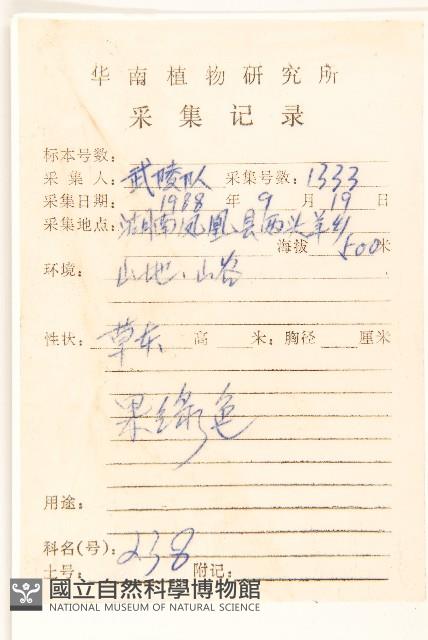 华南植物研究所
采集记录
标本号数:
采集人: 武陵队 采集号数: 1333
采集日期: 1988 年 9 月 19 日
采集地点: 湖南凤凰县两头羊乡
海拔 500 米
环境: 山地、山谷
性状: 草本 高 米; 胸径 厘米
果绿色
用途:
科名(号): 238
土号: 附记:
國立自然科學博物館
NATIONAL MUSEUM OF NATURAL SCIENCE